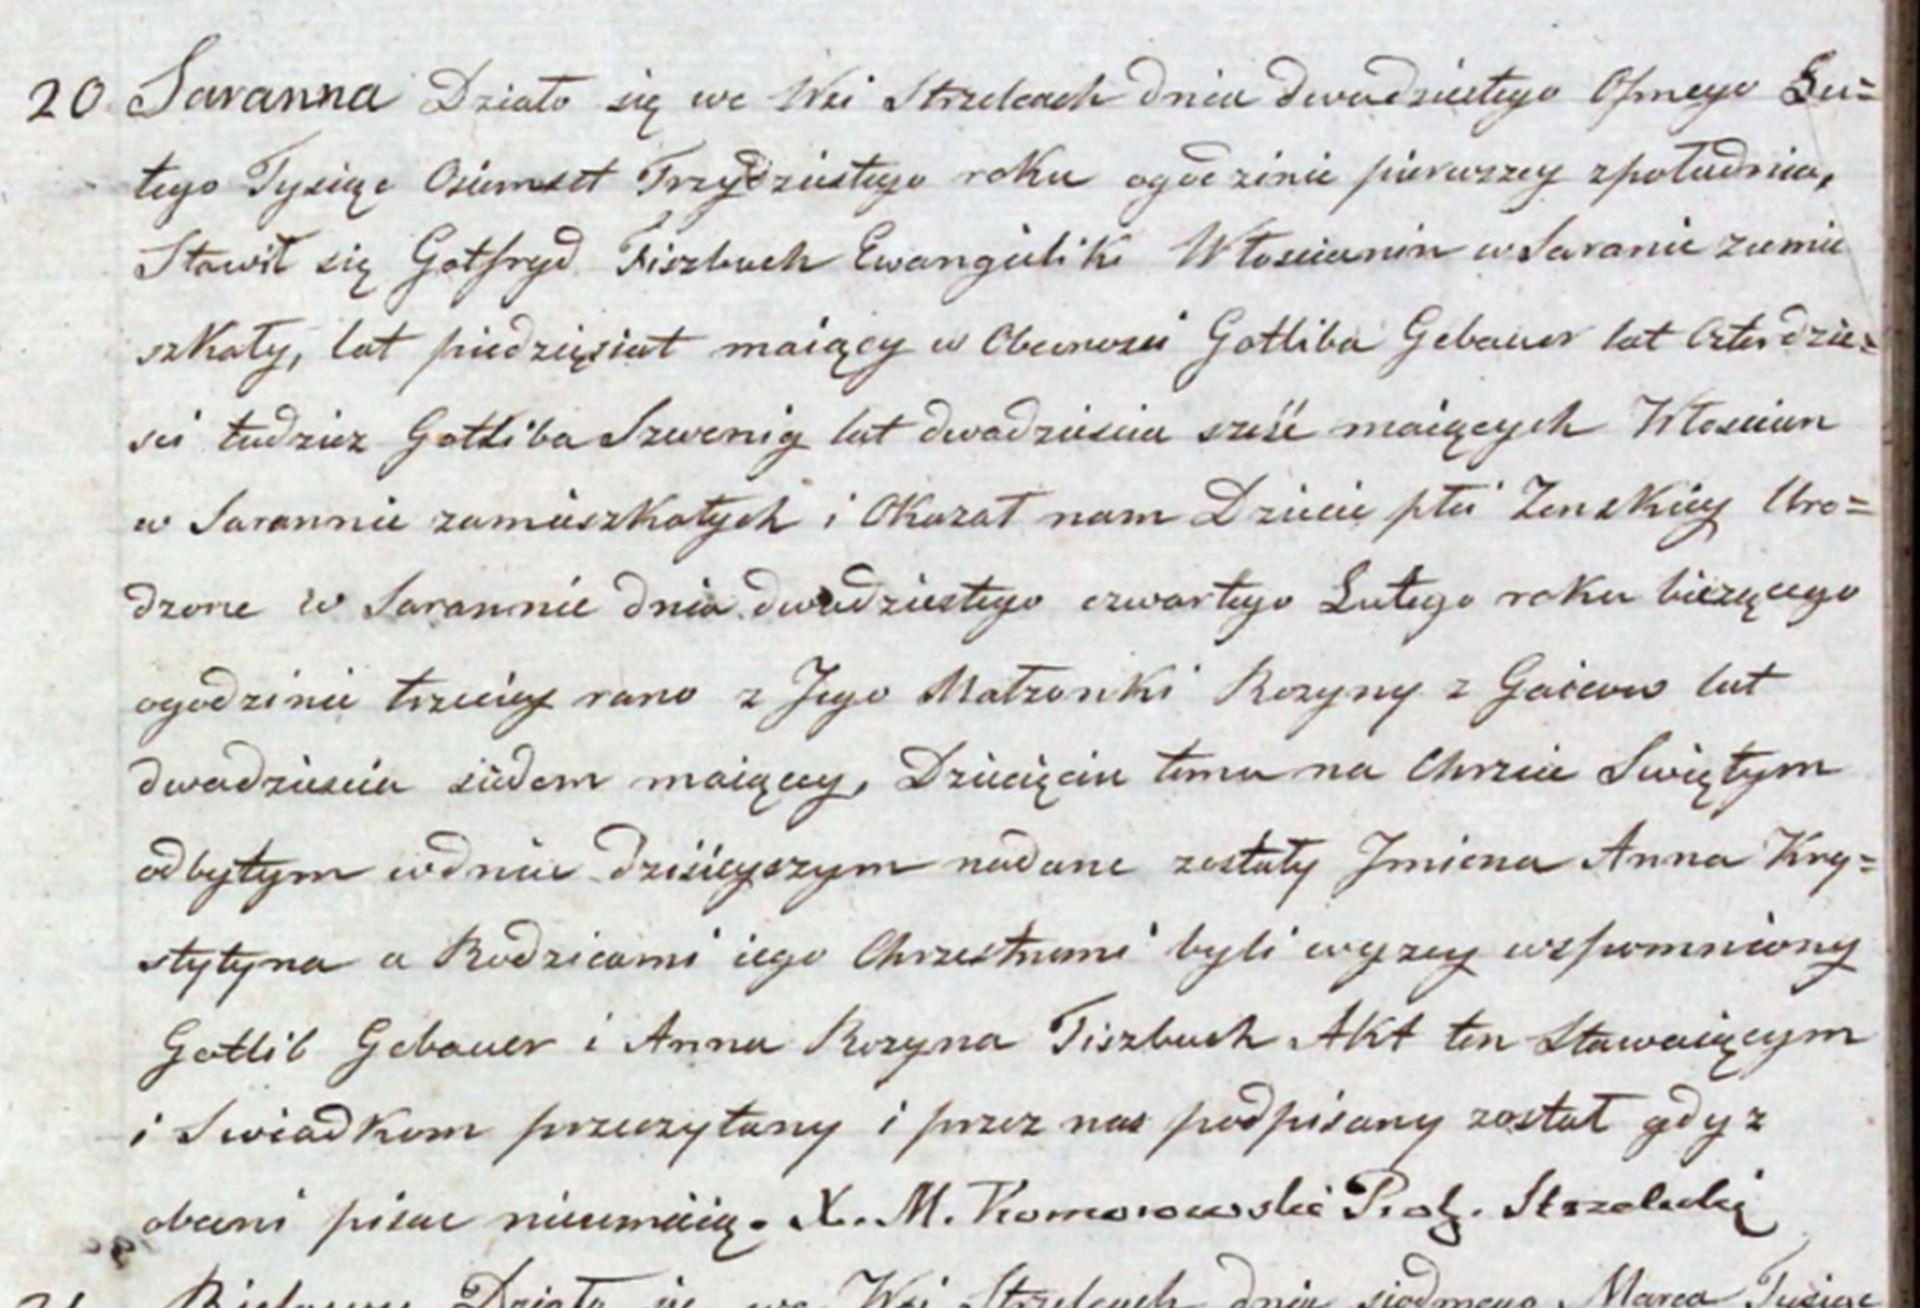 20 Saranna Działo się we Wsi Strzelcach dnia dwudziestego Osmego Lu=
tego Tysiąc Osiemset Trzydziestego roku ogodzinie pierwszey zpołudnia,
Stawił się Gotfryd Fiszbach Ewangielik Włoscianin w Saranie zamie
szkały, lat piedzięsiat maiący w Obecnosci Gotliba Gebauer lat Czterdzie=
sci tudziez Gotliba Szwenig lat dwadziescia sześć maiących Włoscian
w Sarannie zamieszkałych i Okazał nam Dziecie płci Zenskiey Uro=
dzone w Sarannie dnia dwudziestego czwartego Lutego roku biezącego
ogodzinie trzeciey rano z Jego Małzonki Rozyny z lat
dwadziescia siedem maiącey, Dziecięciu temu na Chrzcie Swiętym
odbytym wdniu dzisieyszym nadane zostały Jmiona Anna Kry=
stytyna a Rodzicami iego Chrzestnemi byli wyzey wspomniony
Gotlib Gebauer i Anna Rozyna Fiszbach Akt ten Stawaiącym
i Swiadkom przeczytany i przez nas podpisany został gdyz
obecni pisac nieumieią. X. M. Komorowski Strzelecki
Działo się we Wsi Strzelcach dnia siodmego Marca Tysiąc